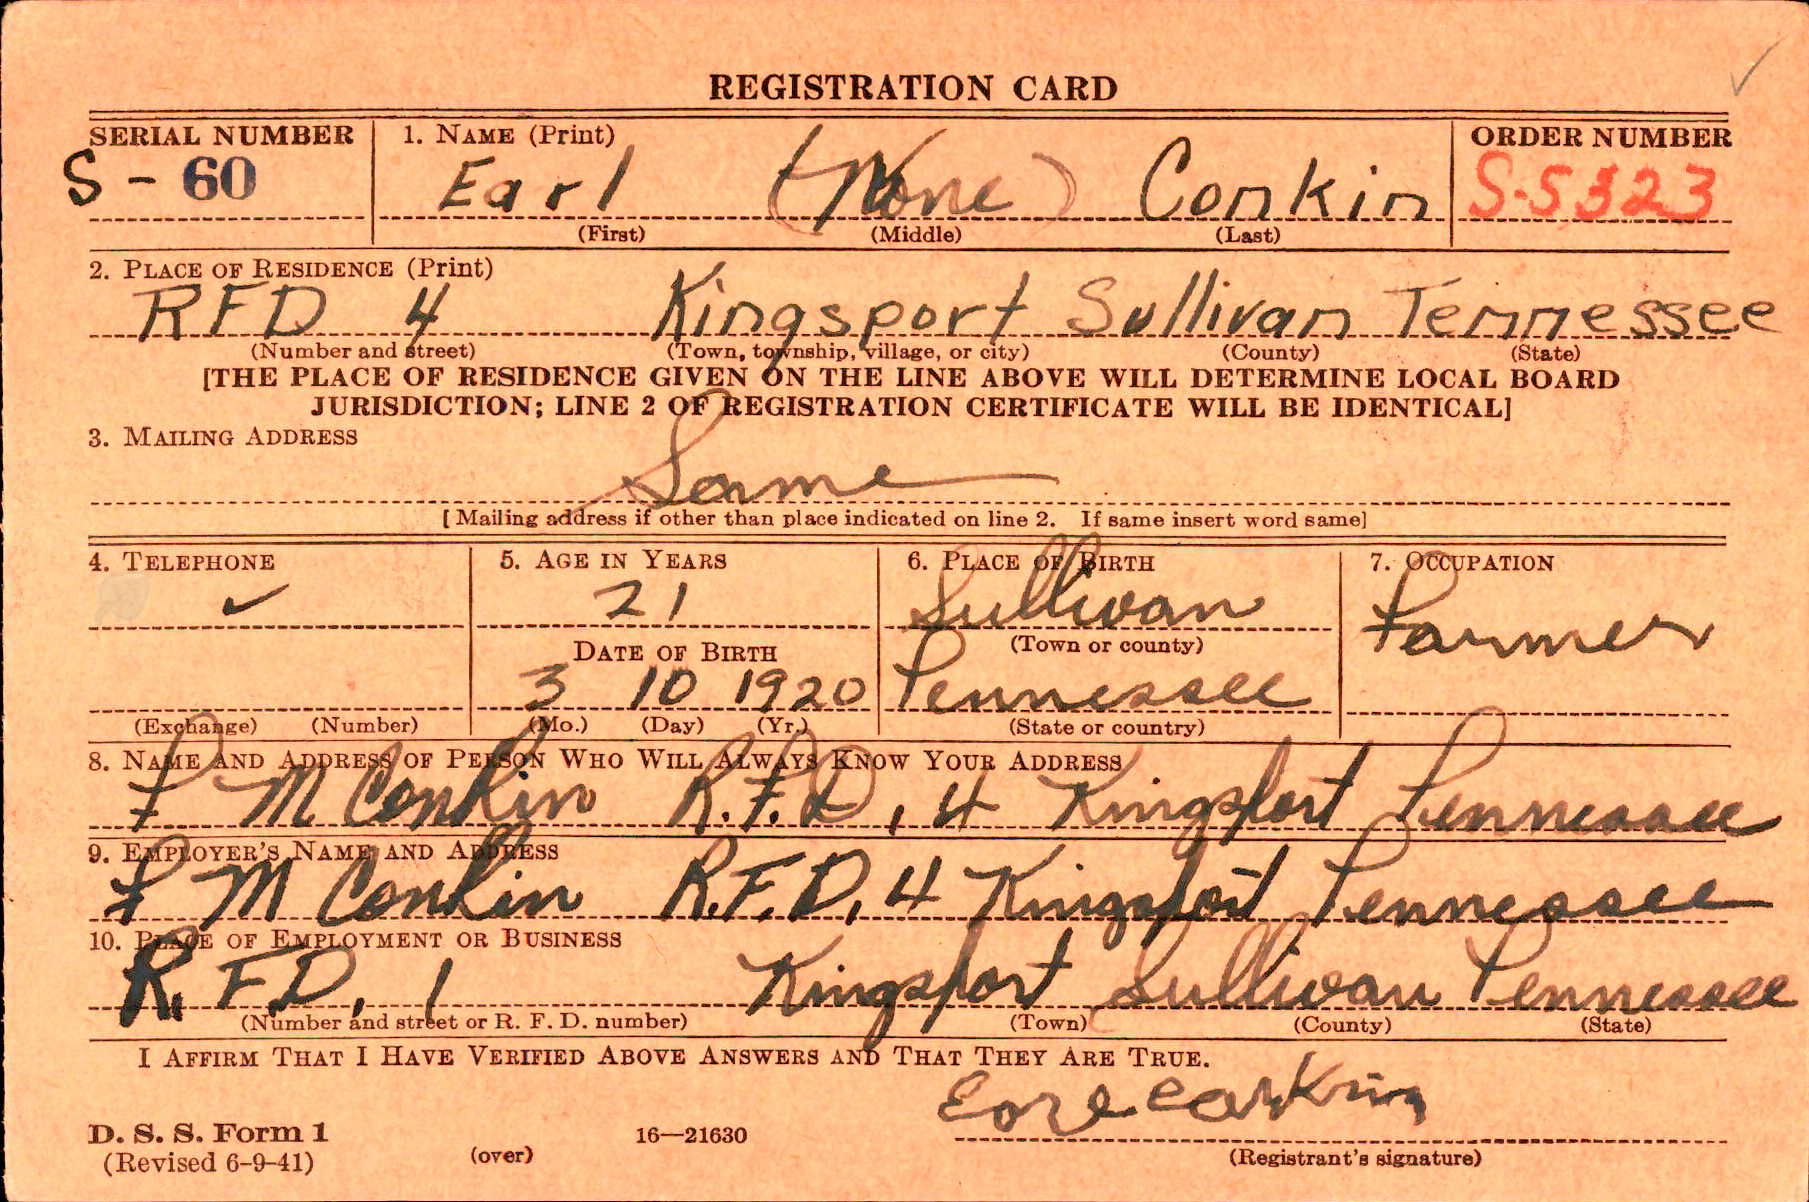 REGISTRATION CARD
SERIAL NUMBER 1. NAME (Print) ORDER NUMBER
S - 60 Earl (None) Conkin S-5323
(First) (Middle) (Last)
2. PLACE OF RESIDENCE (Print)
RFD 4 Kingsport Sullivan Tennessee
(Number and street) (Town, township, village, or city) (County) (State)
[THE PLACE OF RESIDENCE GIVEN ON THE LINE ABOVE WILL DETERMINE LOCAL BOARD
JURISDICTION; LINE 2 OF REGISTRATION CERTIFICATE WILL BE IDENTICAL]
3. MAILING ADDRESS
Same
[Mailing address if other than place indicated on line 2. If same insert word same]
4. TELEPHONE 5. AGE IN YEARS 6. PLACE OF BIRTH 7. OCCUPATION
✓ 21 Sullivan Farmer
DATE OF BIRTH (Town or county)
3 10 1920 Tennessee
(Exchange) (Number) (Mo.) (Day) (Yr.) (State or country)
8. NAME AND ADDRESS OF PERSON WHO WILL ALWAYS KNOW YOUR ADDRESS
F M Conkin R.F.D, 4 Kingsport Tennessee
9. EMPLOYER'S NAME AND ADDRESS
F M Conkin R.F.D, 4 Kingsport Tennessee
10. PLACE OF EMPLOYMENT OR BUSINESS
R. F.D, 1 Kingsport Sullivan Tennessee
(Number and street or R. F. D. number) (Town) (County) (State)
I AFFIRM THAT I HAVE VERIFIED ABOVE ANSWERS AND THAT THEY ARE TRUE.
Earl Conkin
D. S. S. Form 1
(Revised 6-9-41) (over) 16—21630 (Registrant's signature)